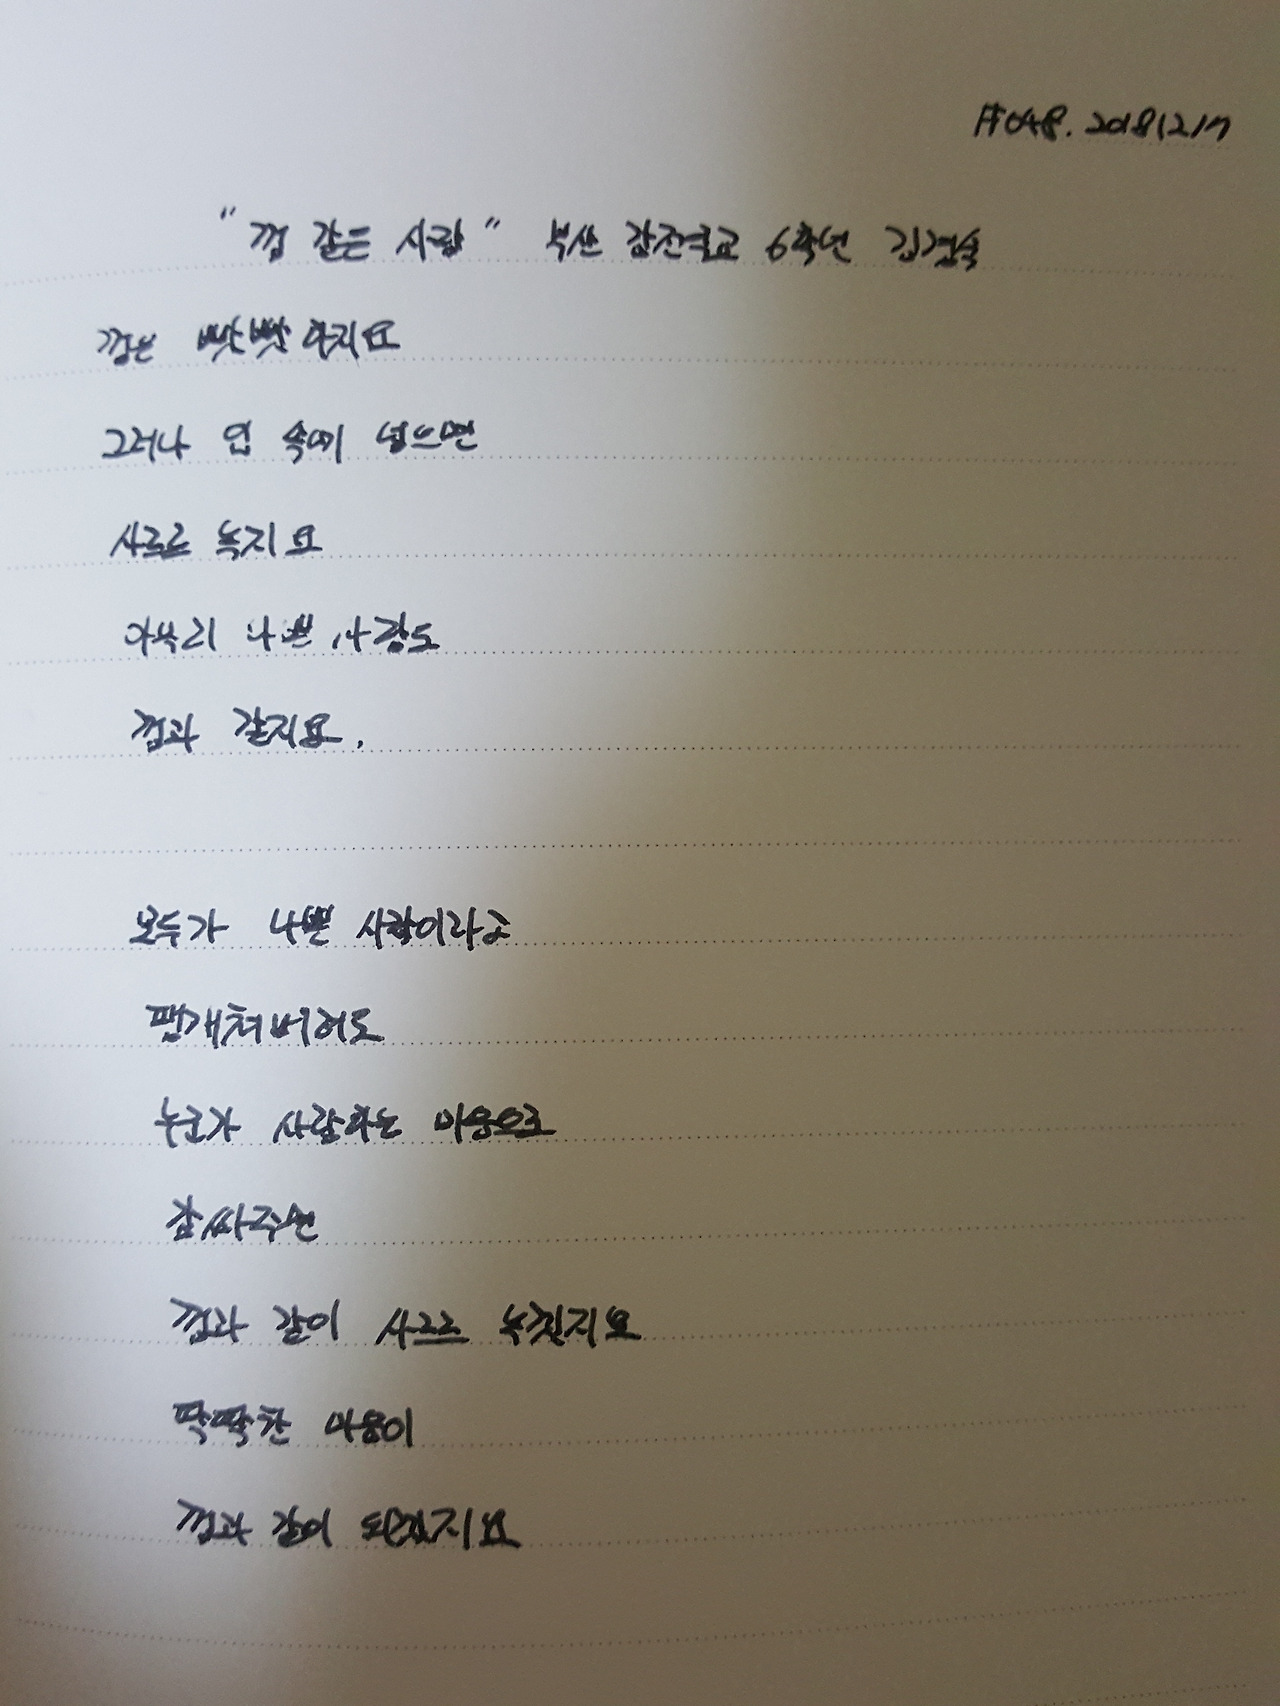 #048. 20181217
"껌 같은 사람" 부산 감전국교 6학년 김경숙
껌은 빳빳하지요
그러나 입 속에 넣으면
사르르 녹지요
아무리 나쁜 사람도
껌과 같지요.
모두가 나쁜 사람이라고
팽개쳐버려도
누군가 사랑하는 마음으로
감싸주면
껌과 같이 사르르 녹겠지요
딱딱한 마음이
껌과 같이 되겠지요